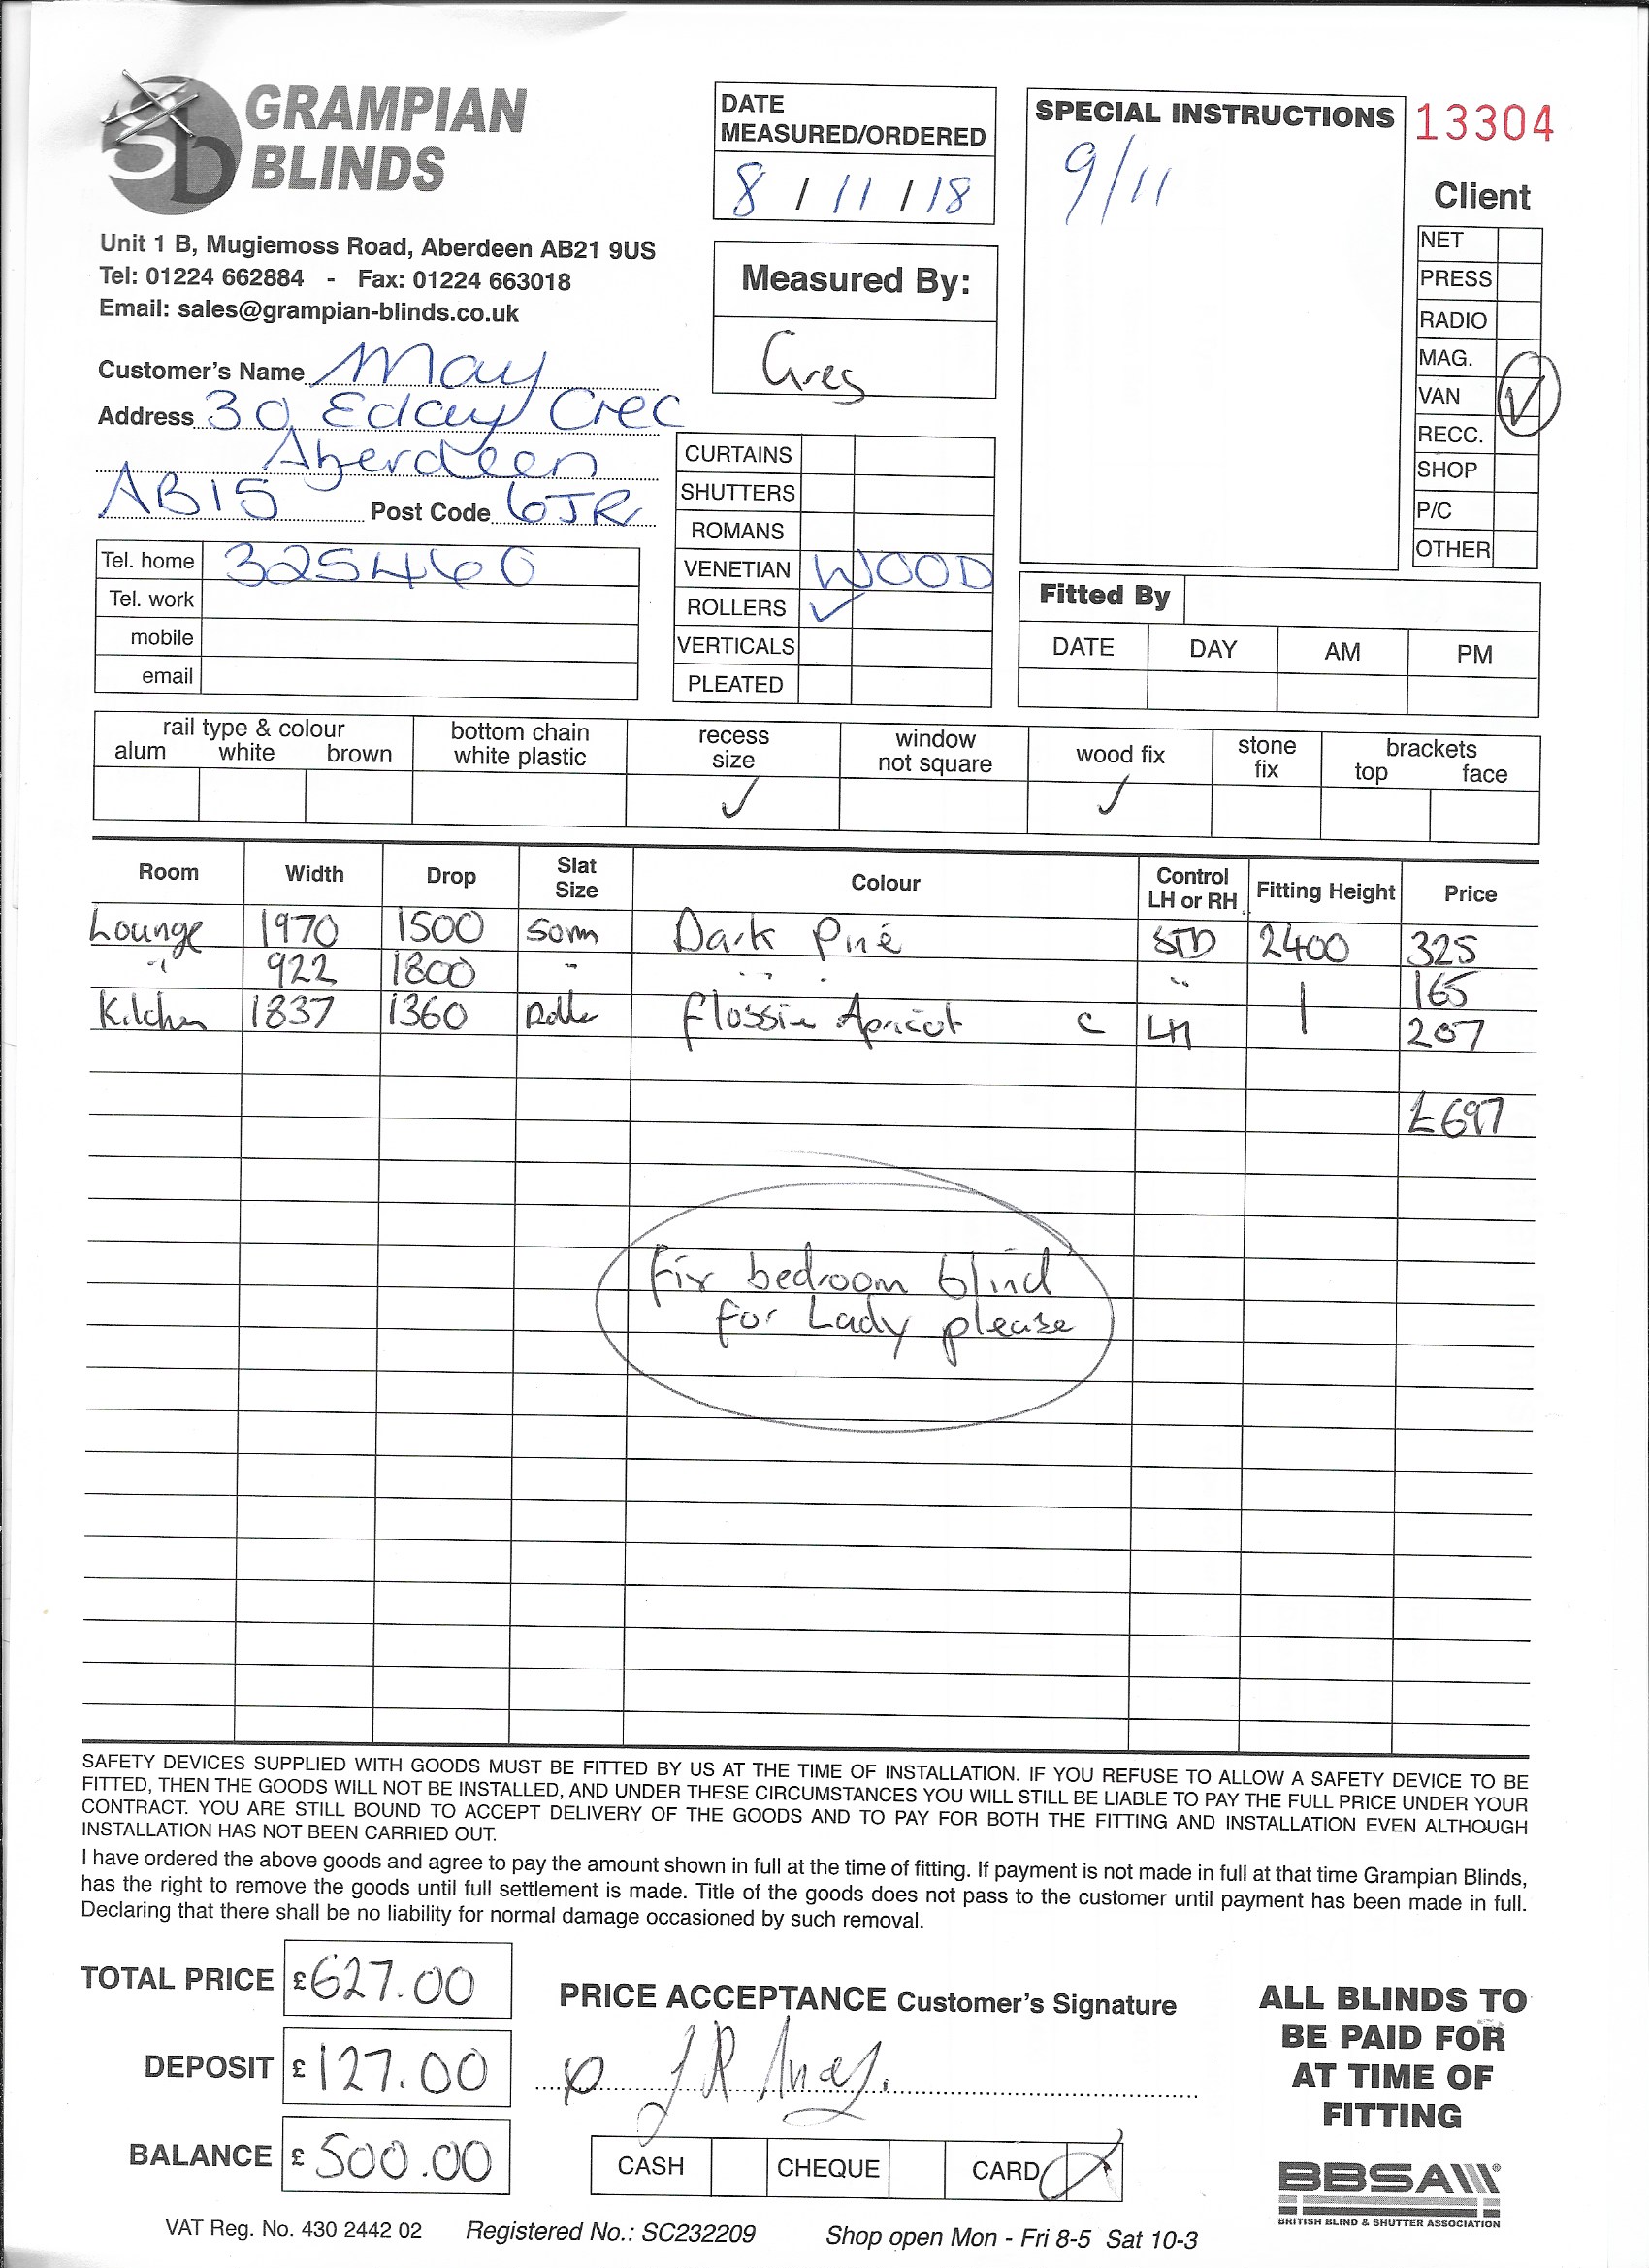 GRAMPIAN
BLINDS
Unit 1 B, Mugiemoss Road, Aberdeen AB21 9US
Tel: 01224 662884 - Fax: 01224 663018
Email: sales@grampian-blinds.co.uk
DATE
MEASURED/ORDERED
8 / 11 / 18
Measured By:
Greg
SPECIAL INSTRUCTIONS
9/11
13304
Client
NET
PRESS
RADIO
MAG.
VAN ✓
RECC.
SHOP
P/C
OTHER
Customer's Name May
Address 30 Eday Cres
Aberdeen
AB15 Post Code 6JR
Tel. home 325460
Tel. work
mobile
email
CURTAINS
SHUTTERS
ROMANS
VENETIAN WOOD
ROLLERS ✓
VERTICALS
PLEATED
Fitted By
DATE DAY AM PM
rail type & colour
alum white brown
bottom chain
white plastic
recess
size
✓
window
not square
wood fix
✓
stone
fix
brackets
top face
Room Width Drop Slat Size Colour Control LH or RH Fitting Height Price
Lounge 1970 1500 50mm Dark Pine STD 2400 325
" 922 1800 " " " " 165
Kitchen 1837 1360 Roller Flossie Apricot C LH | 207
£697
Fix bedroom blind
for Lady please
SAFETY DEVICES SUPPLIED WITH GOODS MUST BE FITTED BY US AT THE TIME OF INSTALLATION. IF YOU REFUSE TO ALLOW A SAFETY DEVICE TO BE
FITTED, THEN THE GOODS WILL NOT BE INSTALLED, AND UNDER THESE CIRCUMSTANCES YOU WILL STILL BE LIABLE TO PAY THE FULL PRICE UNDER YOUR
CONTRACT. YOU ARE STILL BOUND TO ACCEPT DELIVERY OF THE GOODS AND TO PAY FOR BOTH THE FITTING AND INSTALLATION EVEN ALTHOUGH
INSTALLATION HAS NOT BEEN CARRIED OUT.
I have ordered the above goods and agree to pay the amount shown in full at the time of fitting. If payment is not made in full at that time Grampian Blinds,
has the right to remove the goods until full settlement is made. Title of the goods does not pass to the customer until payment has been made in full.
Declaring that there shall be no liability for normal damage occasioned by such removal.
TOTAL PRICE £627.00
DEPOSIT £127.00
BALANCE £500.00
PRICE ACCEPTANCE Customer's Signature
J R May.
CASH CHEQUE CARD
ALL BLINDS TO
BE PAID FOR
AT TIME OF
FITTING
BBSA
BRITISH BLIND & SHUTTER ASSOCIATION
VAT Reg. No. 430 2442 02 Registered No.: SC232209 Shop open Mon - Fri 8-5 Sat 10-3